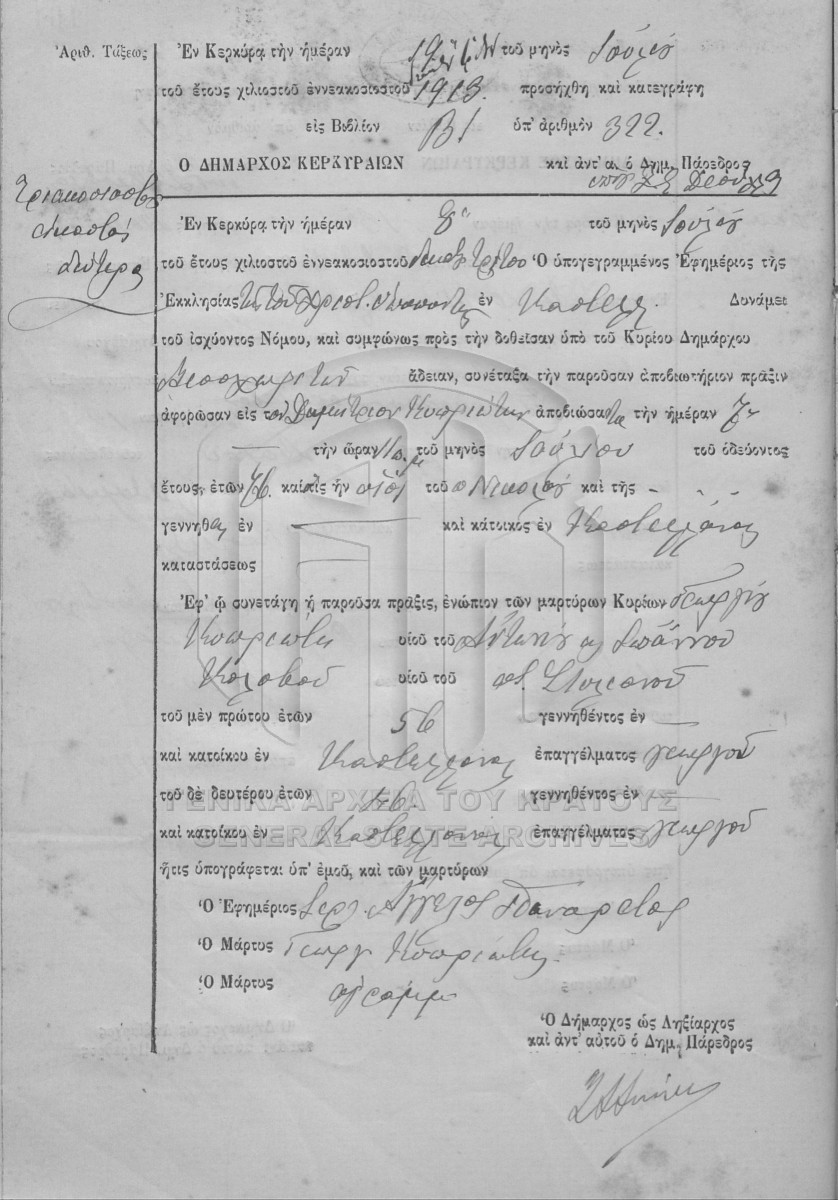 Ἀριθ. Τάξεως
Ἐν Κερκύρᾳ τὴν ἡμέραν 19 τοῦ μηνὸς Ἰουλίου
τοῦ ἔτους χιλιοστοῦ ἐννεακοσιοστοῦ 1913. προσήχθη καὶ κατεγράφη
εἰς Βιβλίον Β/ ὑπ' ἀριθμὸν 322.
Ο ΔΗΜΑΡΧΟΣ ΚΕΡΚΥΡΑΙΩΝ καὶ ἀντ' α. ὁ Δημ. Πάρεδρος
Τριακοσιοστὸς
εἰκοστὸς
δεύτερος
Ἐν Κερκύρᾳ τὴν ἡμέραν 8η τοῦ μηνὸς Ἰουλίου
τοῦ ἔτους χιλιοστοῦ ἐννεακοσιοστοῦ δεκάτου τρίτου Ὁ ὑπογεγραμμένος Ἐφημέριος τῆς
Ἐκκλησίας ἐν Καστελλ. Δυνάμει
τοῦ ἰσχύοντος Νόμου, καὶ συμφώνως πρὸς τὴν δοθεῖσαν ὑπὸ τοῦ Κυρίου Δημάρχου
ἄδειαν, συνέταξα τὴν παροῦσαν ἀποβιωτήριον πρᾶξιν
ἀφορῶσαν εἰς τὸν Δημήτριον Κυπριώτην ἀποβιώσαντα τὴν ἡμέραν 7ην
τὴν ὥραν 11 π.μ. τοῦ μηνὸς Ἰουλίου τοῦ ὁδεύοντος
ἔτους, ἐτῶν 76. καὶ τίς ἦν υἱὸς τοῦ π Νικολάου καὶ τῆς -
γεννηθεὶς ἐν — καὶ κάτοικος ἐν Καστελλάνοις
καταστάσεως
Ἐφ' ᾧ συνετάγη ἡ παροῦσα πρᾶξις, ἐνώπιον τῶν μαρτύρων Κυρίων Γεωργίου
Κυπριώτη υἱοῦ τοῦ Ἀντωνίου καὶ Ἰωάννου
Κολοβοῦ υἱοῦ τοῦ π. Στυλιανοῦ
τοῦ μὲν πρώτου ἐτῶν 56 γεννηθέντος ἐν —
καὶ κατοίκου ἐν Καστελλάνοις ἐπαγγέλματος γεωργοῦ
τοῦ δὲ δευτέρου ἐτῶν γεννηθέντος ἐν —
ΓΕΝΙΚΑ ΑΡΧΕΙΑ ΤΟΥ ΚΡΑΤΟΥΣ
καὶ κατοίκου ἐν Καστελλάνοις ἐπαγγέλματος γεωργοῦ
GENERAL STATE ARCHIVES
ἥτις ὑπογράφεται ὑπ' ἐμοῦ, καὶ τῶν μαρτύρων
Ὁ Ἐφημέριος Ἱερ. Ἄγγελος Πανάρετος
Ὁ Μάρτυς Γεώργ Κυπριώτης
Ὁ Μάρτυς ἀγράμμ
Ὁ Δήμαρχος ὡς Ληξίαρχος
καὶ ἀντ' αὐτοῦ ὁ Δημ. Πάρεδρος